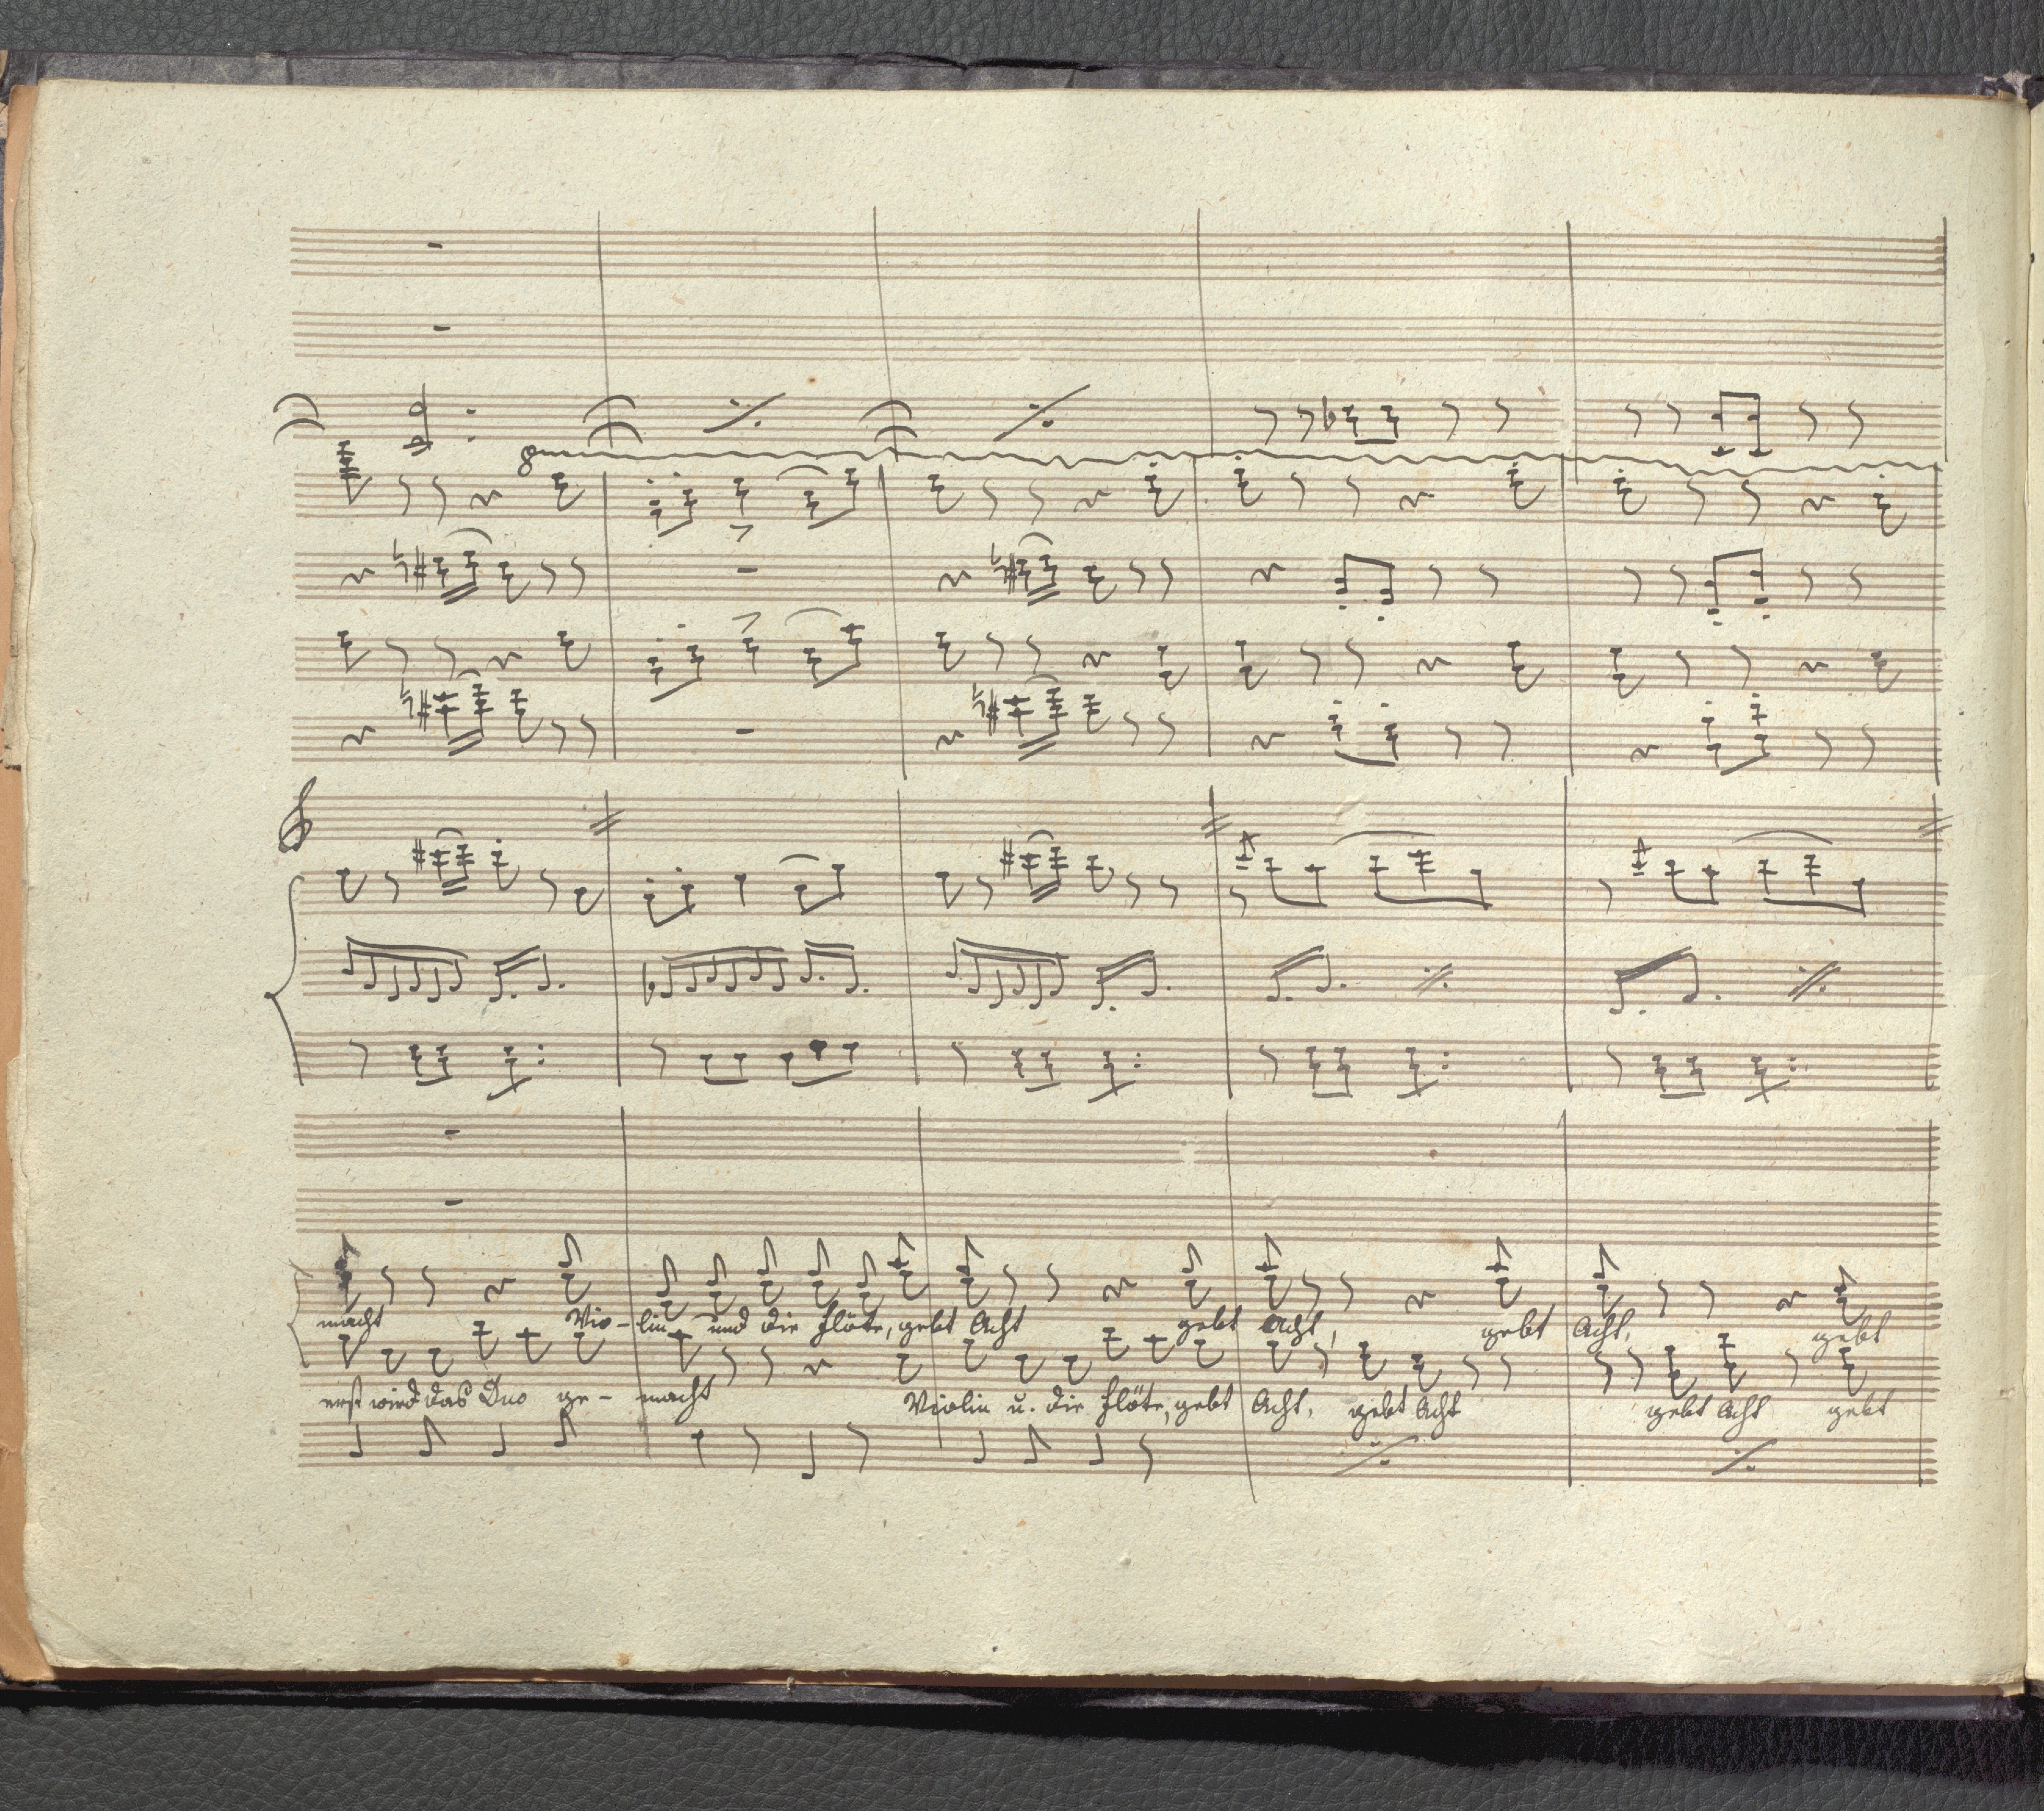 8
macht Vio- lin und die Flöte, gebt Acht gebt Acht, gebt Acht, gebt
erst wird das Duo ge- macht Violin u. die Flöte, gebt Acht, gebt Acht gebt Acht gebt